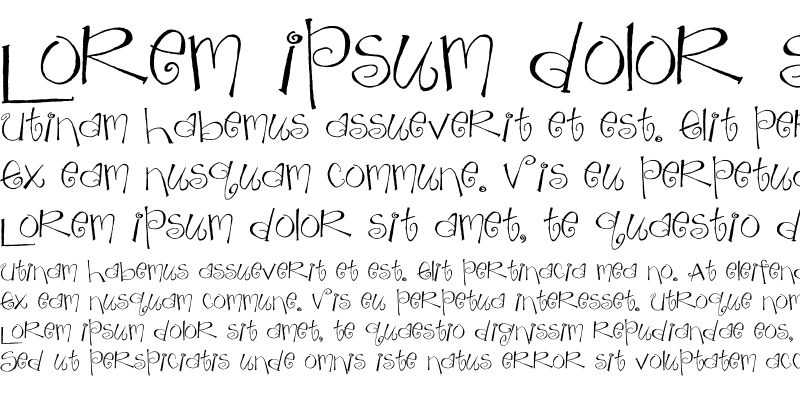 Lorem ipsum dolor s
Utinam habemus assueverit et est. Elit per
Ex eam nusquam commune. Vis eu perpetua
Lorem ipsum dolor sit amet, te quaestio d
Utinam habemus assueverit et est. Elit pertinacia mea no. At eleifend
Ex eam nusquam commune. Vis eu perpetua interesset. Utroque nom
Lorem ipsum dolor sit amet, te quaestio dignissim repudiandae eos,
Sed ut perspiciatis unde omnis iste natus error sit voluptatem acc